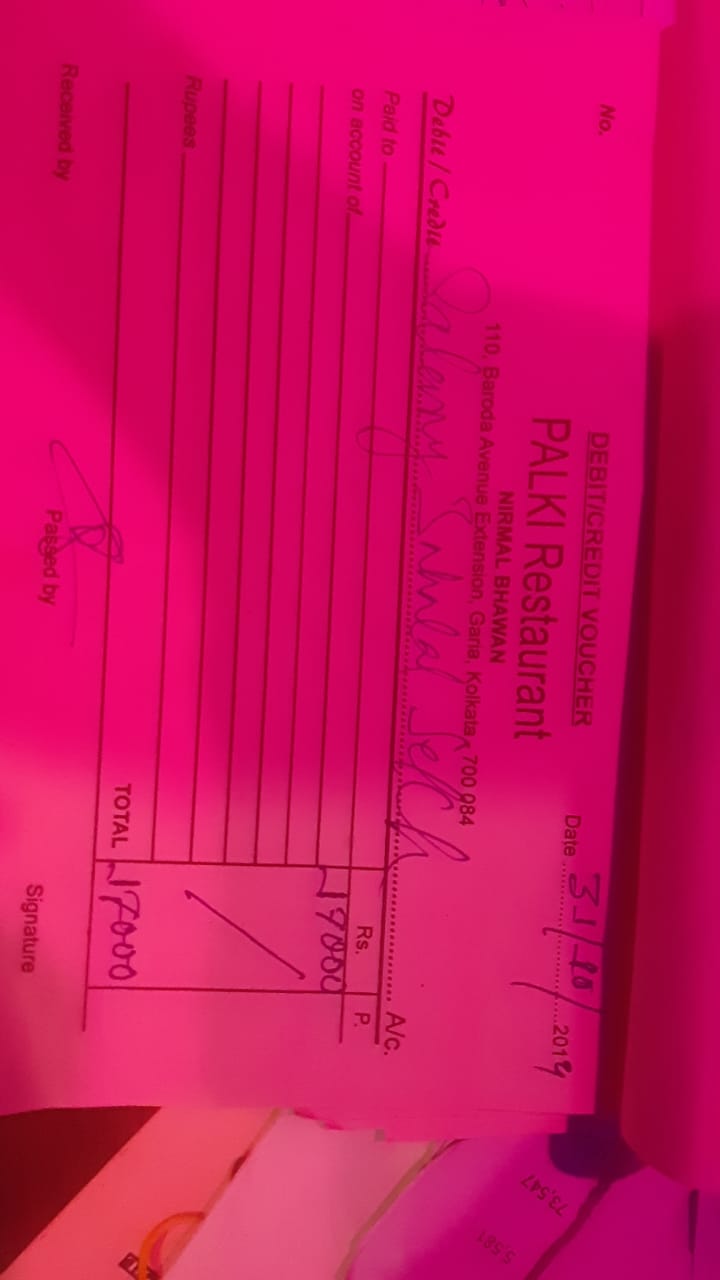 DEBIT/CREDIT VOUCHER
No. Date 31/10/2019
PALKI Restaurant
NIRMAL BHAWAN
110, Baroda Avenue Extension, Garia, Kolkata - 700 084
Debit / Credit A/c.
Paid to Rs. P.
on account of 17000
Rupees
TOTAL 17000
Received by Passed by Signature
73,547
5,581